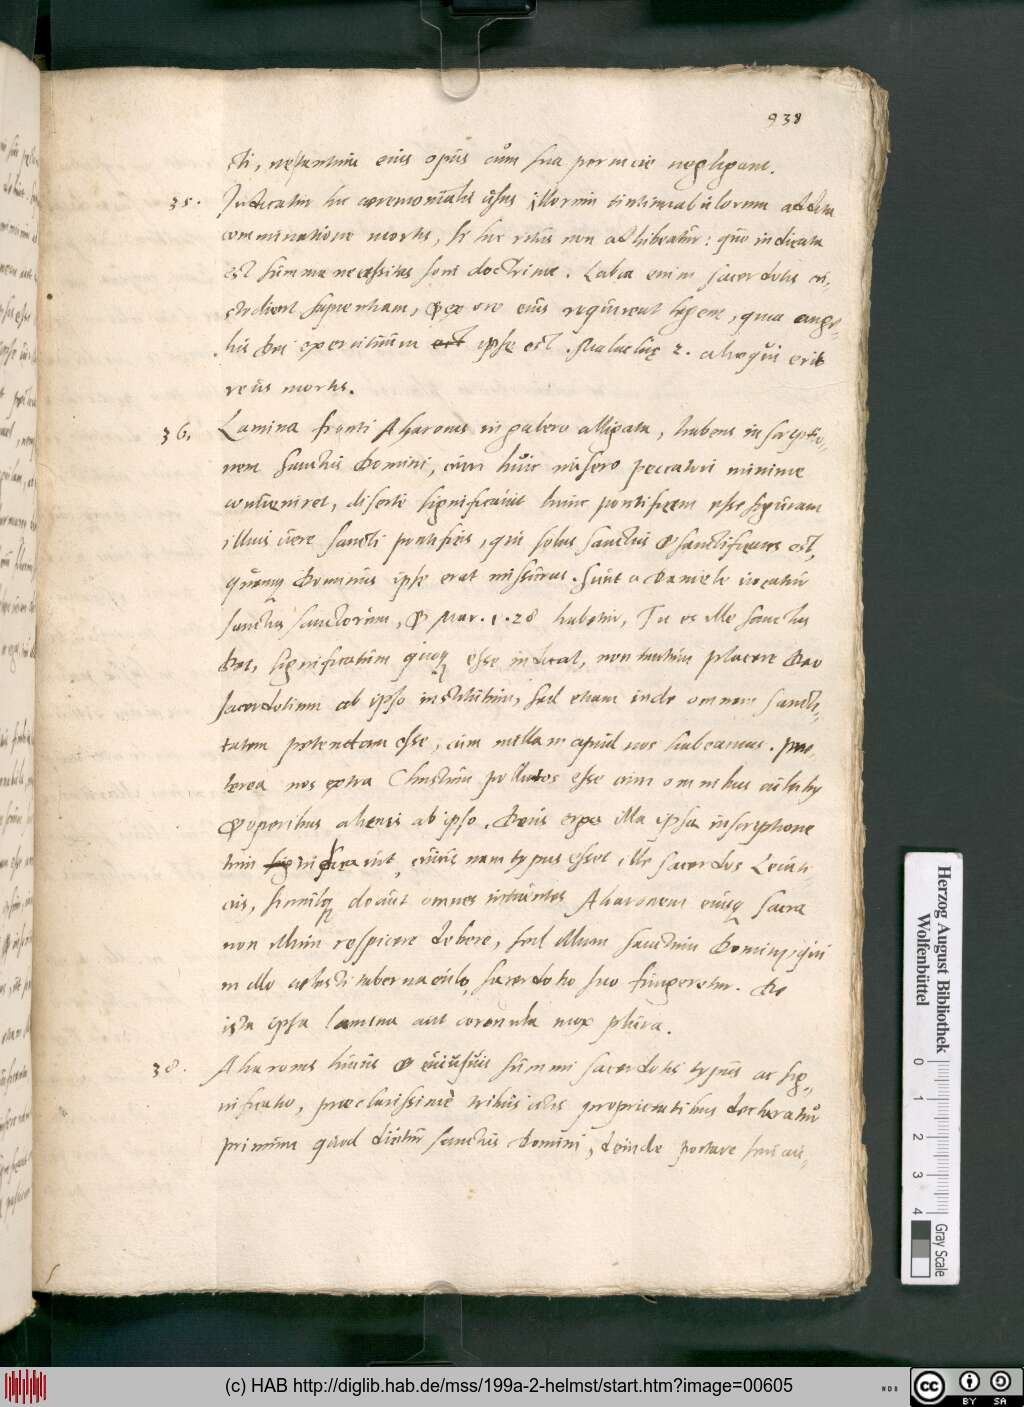 938
sti, nestimtum eius opus cum sua pernicie negligant.
35. Indicatur hic ceremonialis usus illorum tintinnabulorum addita
comminatione mortis, si hic ritus non adhibeatur: quo indicata
est summa necessitas soni doctrinae. Labia enim sacerdotis cu-
stodient sapientiam, & ex ore eius requirent legem, quia ange-
lus Dei exercituum est ipse est. Malachiae 2. alioqui erit
reus mortis.
36. Lamina fronti Aharonis in galero alligata, habens inscriptio-
nem Sanctus Domini, cum huic misero peccatori minime
conveniret, diserte significavit hunc pontificem esse figuram
illius vere sancti pontificis, qui solus sanctus & sanctificans est,
quemque Dominus ipse erat missurus. Sicut a Daniele vocatur
sanctus sanctorum, & Mar. 1. 28 habetur, Tu es ille sanctus
Dei, significatum quoque esse indicat, non tantum placere Deo
sacerdotium ab ipso institutum, sed etiam inde omnem sancti-
tatem petendam esse, cum nullam apud nos habeamus. prae-
terea nos extra Christum pollutos esse cum omnibus cultibus
& operibus alienis ab ipso. Deus ergo illa ipsa inscriptione
tum significavit, cuius nam typus esset ille sacerdos Leviti-
cus, simulque docuit omnes intuentes Aharonem eiusque sacra
non illum respicere debere, sed illum sanctum Domini, qui
in illo caelesti tabernaculo, sacerdotio suo fungeretur. De
ista ipsa lamina aut coronula mox plura.
38. Aharonis huius & cuiusvis summi sacerdotis typus ac sig-
nificatio, praeclarissime tribus istis proprietatibus declaratur
primum quod dicitur sanctus Domini, deinde portare ini
Herzog August Bibliothek
Wolfenbüttel
0 1 2 3 4
Gray Scale
(c) HAB http://diglib.hab.de/mss/199a-2-helmst/start.htm?image=00605
cc BY SA